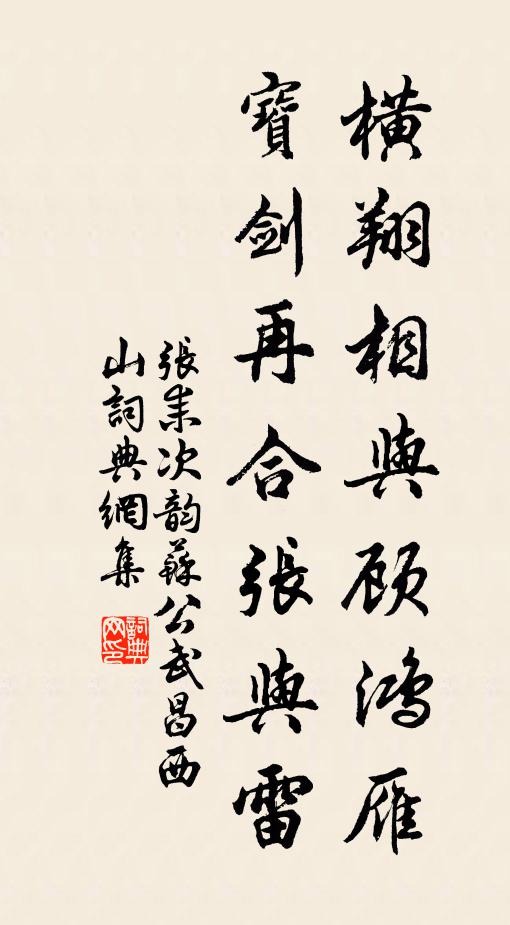 橫翔相與顧鴻雁
寶劍再合張與雷
張耒次韵蘇公武昌西
山詞典網集
詞典网印